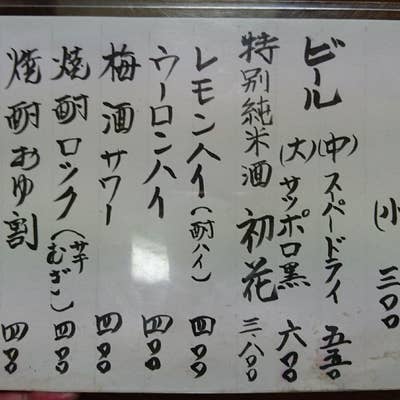 (小 三〇〇
(中)スパードライ 五五〇
ビール
(大)サッポロ黒 六〇〇
特別純米酒 初花 三.八〇〇
レモンハイ(酎ハイ) 四〇〇
ウーロンハイ 四〇〇
梅酒サワー 四〇〇
焼酎ロック(芋むぎ) 四〇〇
焼酎おゆ割 四〇〇